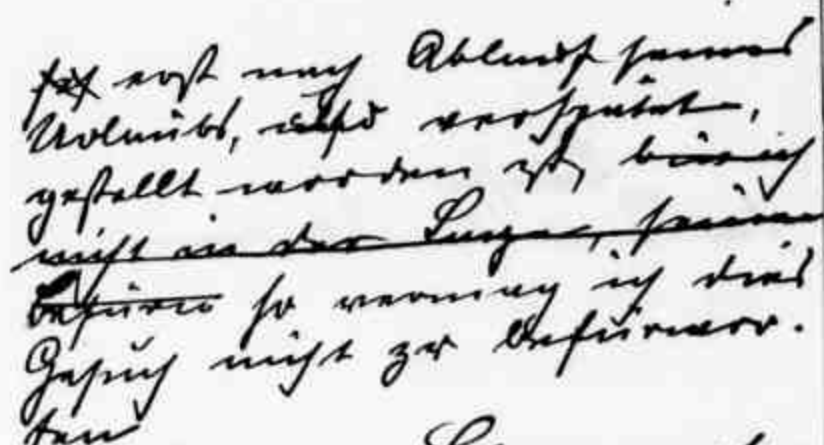 erst nach Ablauf seines
Urlaubs, also verspätet,
gestellt worden ist, bin ich
nicht in der Lage, seine
befürw so vermag ich dies
Gesuch nicht zu befürwor-
ten